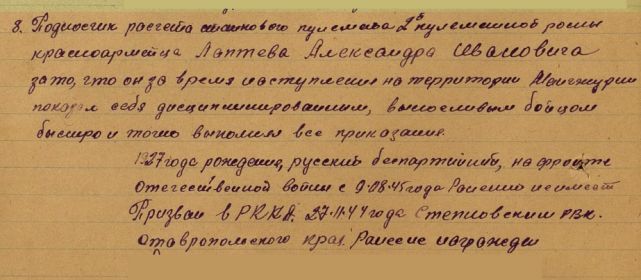 8. Подносчик расчета станкового пулемета 2й пулеметной роты
красноармейца Лаптева Александра Ивановича
за то, что он за время наступления на территории Манчжурии
показал себя дисциплинированным, выносливым бойцом
быстро и точно выполнял все приказания.
1927 года рождения, русский беспартийный, на фронте
Отечественной войны с 9.08.45 года Ранений не имеет
Призван в РККА 27.11.44 года Степновским РВК.
Ставропольского края. Ранее награжден